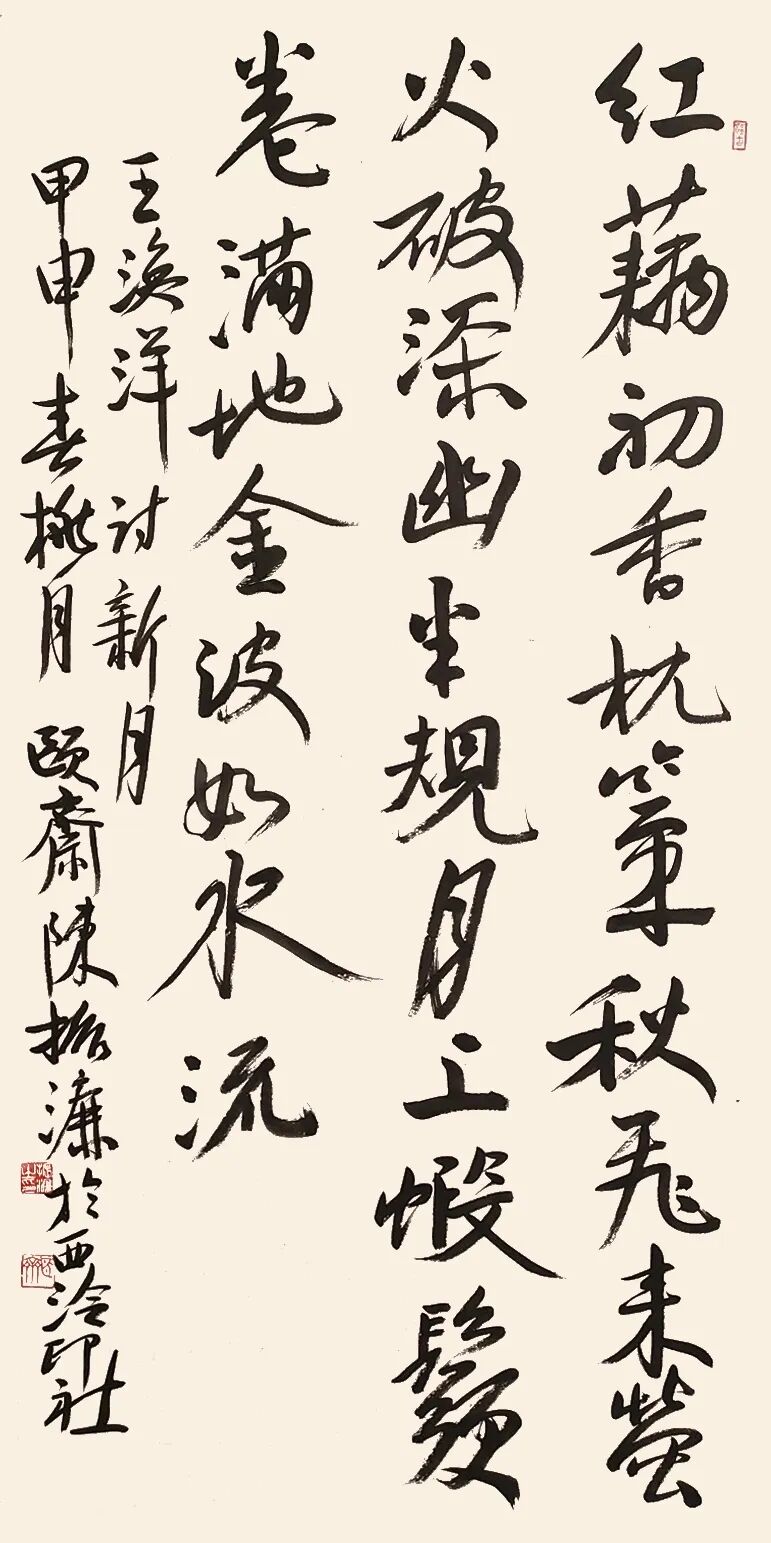 红藕初香枕簟秋飛来螢
火破深幽半規月上蝦鬚
卷滿地金波如水流
王渙洋詩新月
甲申春桃月頤齋陳振濂於西泠印社